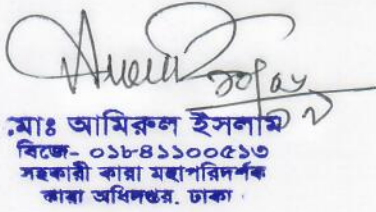 মোঃ আমিরুল ইসলাম
বিজে- ০১৮-৪১১০০৫১৩
সহকারী কারা মহাপরিদর্শক
কারা অধিদপ্তর, ঢাকা